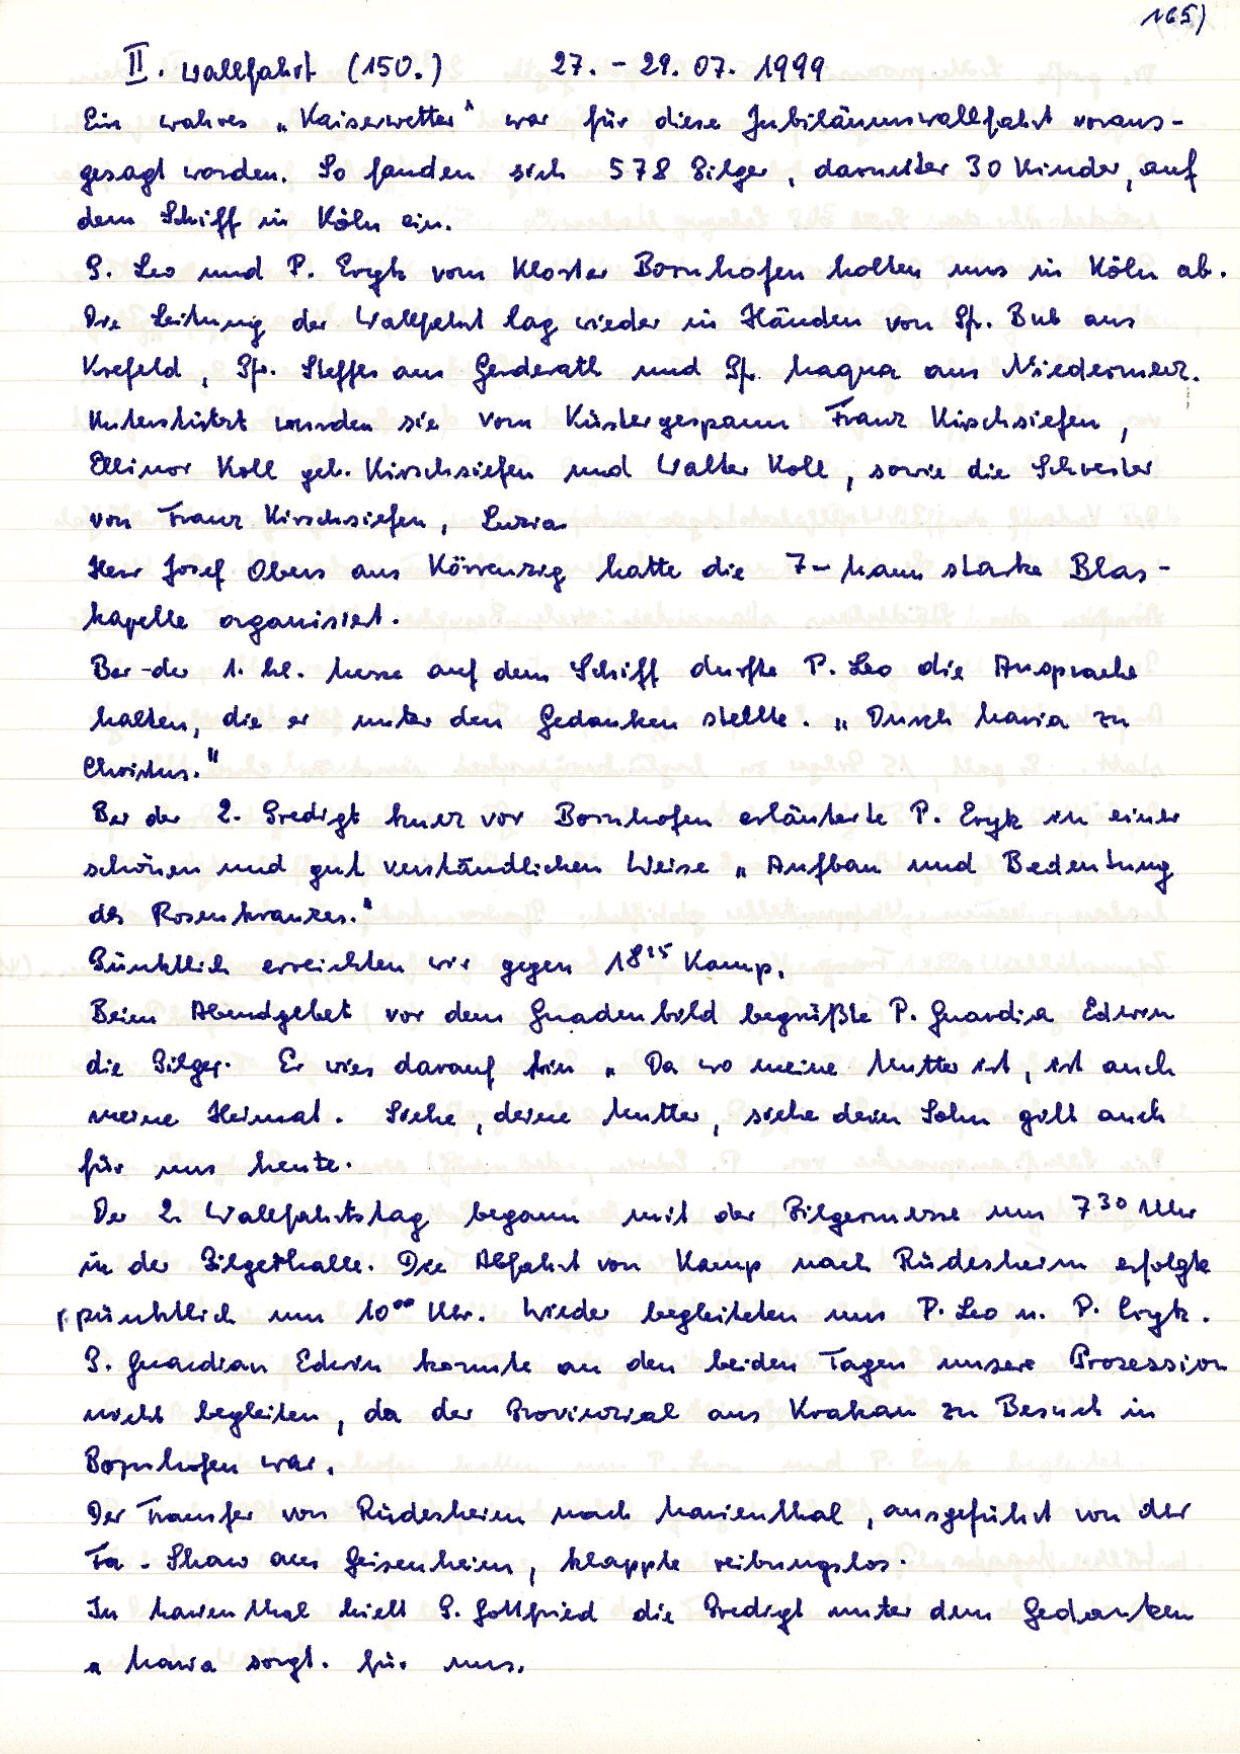 165)
II. Wallfahrt (150.) 27. - 29. 07. 1999
Ein wahres „Kaiserwetter" war für diese Jubiläumswallfahrt voraus-
gesagt worden. So fanden sich 578 Pilger, darunter 30 Kinder, auf
dem Schiff in Köln ein.
P. Leo und P. Eryk vom Kloster Bornhofen holten uns in Köln ab.
Die Leitung der Wallfahrt lag wieder in Händen von Pfr. Bub aus
Krefeld, Pfr. Steffes aus Gerderath und Pfr. Maqua aus Niedermerz.
Unterstützt wurden sie vom Küstergespann Franz Kirschsiefen,
Ellinor Koll geb. Kirschsiefen und Walter Koll, sowie die Schwester
von Franz Kirschsiefen, Luzia
Herr Josef Obers aus Körrenzig hatte die 7-Mann starke Blas-
kapelle organisiert.
Bei der 1. hl. Messe auf dem Schiff durfte P. Leo die Ansprache
halten, die er unter den Gedanken stellte. „Durch Maria zu
Christus."
Bei der 2. Predigt kurz vor Bornhofen erläuterte P. Eryk in einer
schönen und gut verständlichen Weise „Aufbau und Bedeutung
des Rosenkranzes."
Pünktlich erreichten wir gegen 18¹⁵ Kamp.
Beim Abendgebet vor dem Gnadenbild begrüßte P. Guardia Edwin
die Pilger. Er wies darauf hin „Da wo meine Mutter ist, ist auch
meine Heimat. Siehe, deine Mutter, siehe dein Sohn gilt auch
für uns heute.
Der 2. Wallfahrtstag begann mit der Pilgermesse um 7³⁰ Uhr
in der Pilgerhalle. Die Abfahrt von Kamp nach Rüdesheim erfolgte
pünktlich um 10⁰⁰ Uhr. Wieder begleiteten uns P. Leo u. P. Eryk.
P. Guardian Edwin konnte an den beiden Tagen unsere Prozession
nicht begleiten, da der Provinzial aus Krakau zu Besuch in
Bornhofen war.
Der Transfer von Rüdesheim nach Marienthal, ausgeführt von der
Fa. aus Geisenheim, klappte reibungslos.
In Marienthal hielt P. Gottfried die Predigt unter dem Gedanken
„ Maria sorgt. für uns.